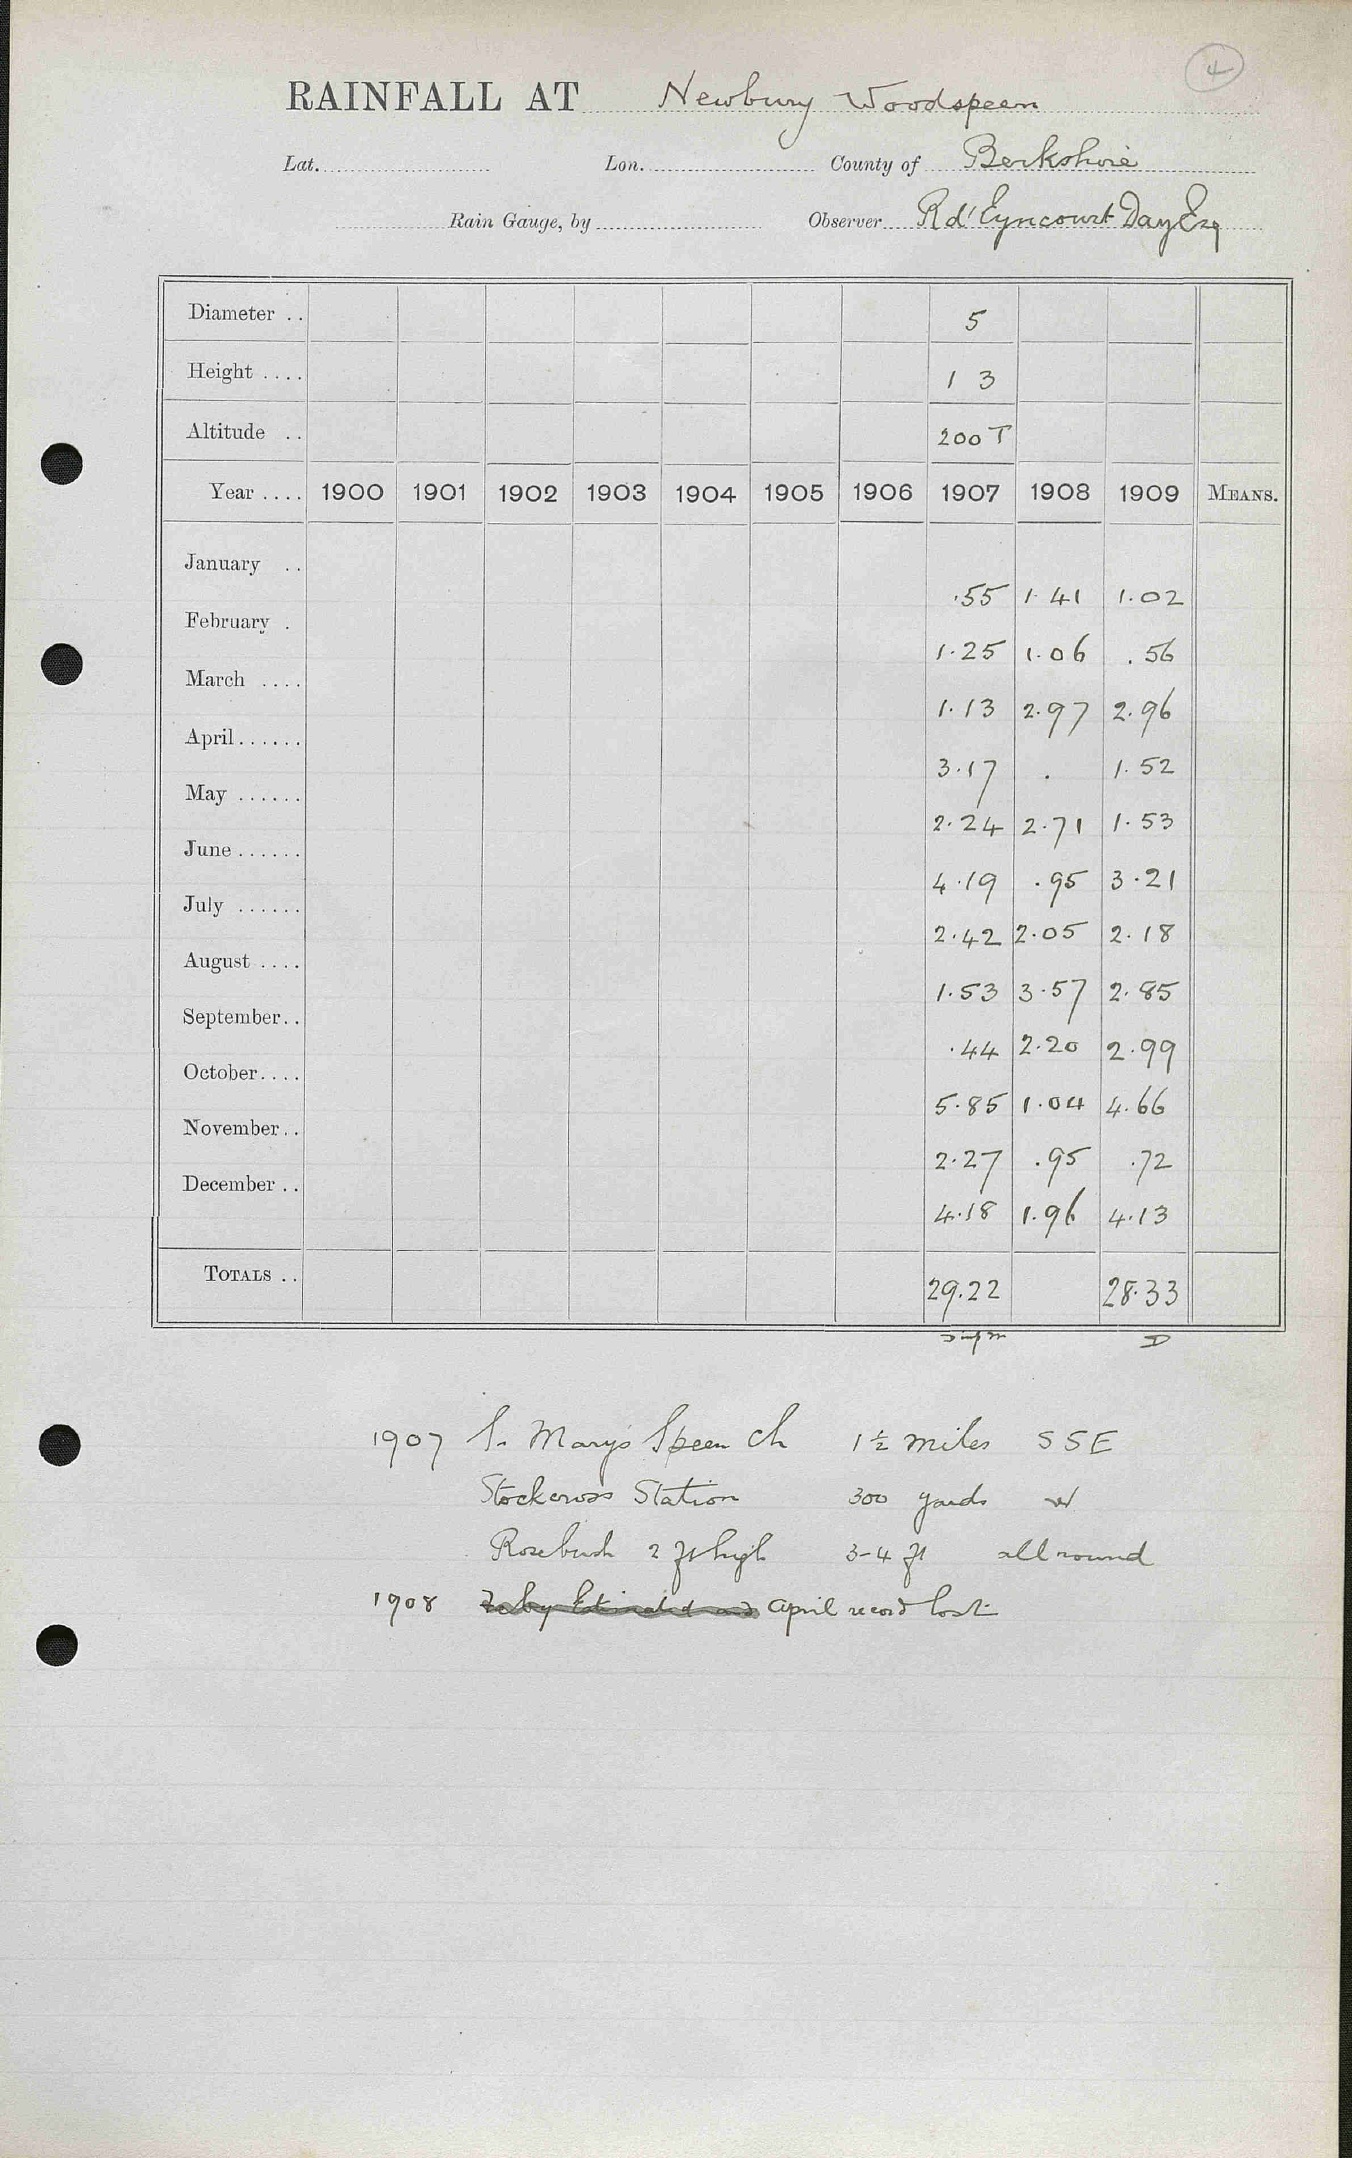 4
RAINFALL AT Newbury Woodspeen
Lat. Lon. County of Berkshire
Rain Gauge, by Observer R d'Eyncourt Day Esq
Diameter .. 5
Height .... 1 3
Altitude .. 200 T
Year .... 1900 1901 1902 1903 1904 1905 1906 1907 1908 1909 MEANS.
January .. .55 1.41 1.02
February . 1.25 1.06 .56
March .... 1.13 2.97 2.96
April...... 3.17 . 1.52
May ...... 2.24 2.71 1.53
June ...... 4.19 .95 3.21
July ...... 2.42 2.05 2.18
August .... 1.53 3.57 2.85
September.. .44 2.20 2.99
October.... 5.85 1.04 4.66
November.. 2.27 .95 .72
December .. 4.18 1.96 4.13
TOTALS .. 29.22 28.33
D
1907 S. Mary's Speen Ch 1½ miles SSE
Stockcross Station 300 yards W
Rosebush 2 ft high 3-4 ft all round
1908 April record lost